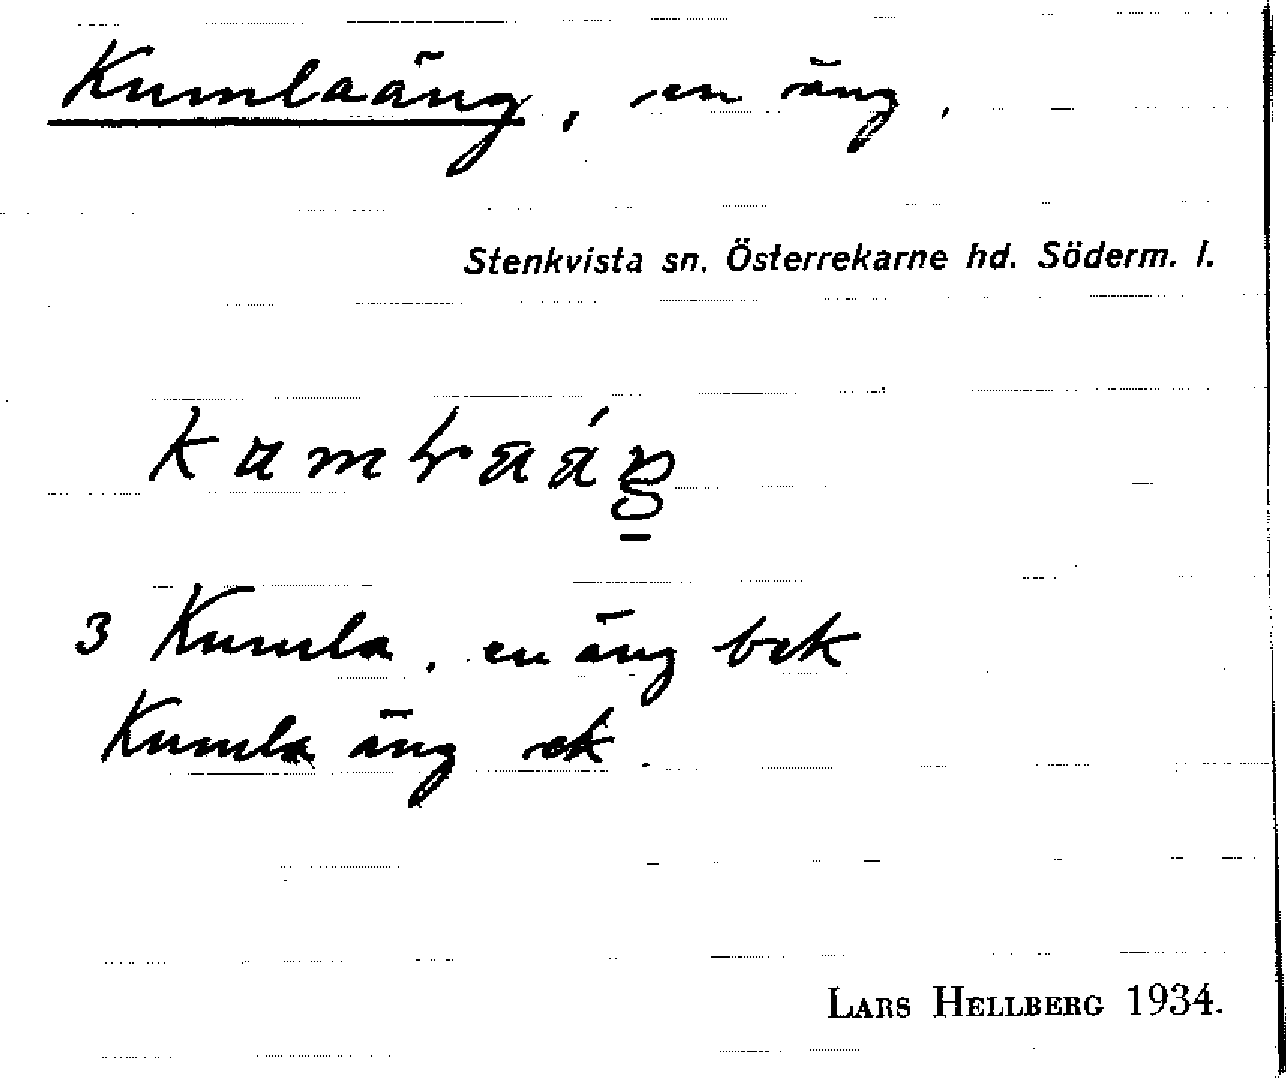 Kumlaäng, en äng.
Stenkvista sn. Österrekarne hd. Söderm. l.
3 Kumla, en äng bek
Kumla äng ek.
LARS HELLBERG 1934.